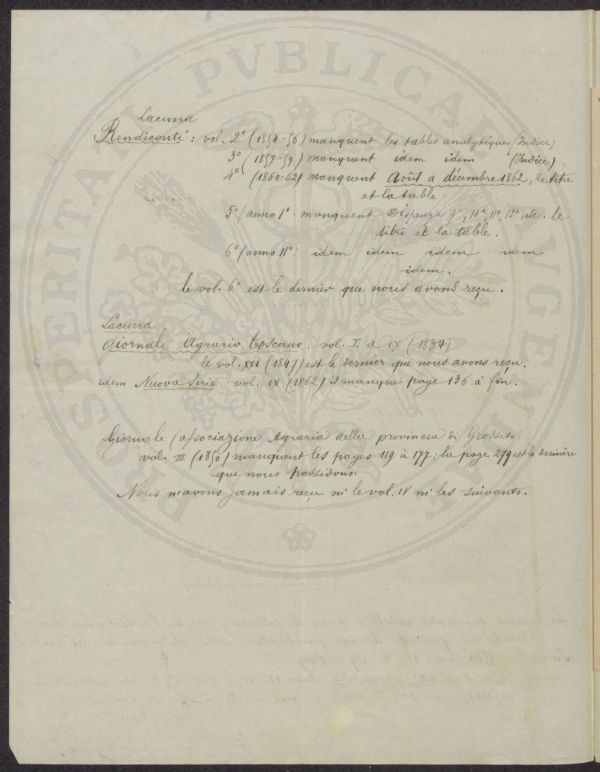 Lacuna
Rendiconti: vol. 2° (1854-56) manquent les tables analytiques (Indice)
3° (1857-59) manquent idem idem (Indice)
4° (1860-62) manquent Août à décembre 1862, le titre
et la table
5° (anno 1° manquent Dispensa 9ª, 10ª, 11ª, 12ª, etc. le
titre et la table.
6° (anno 11°. idem idem idem idem
idem.
le vol. 6° est le dernier que nous avons reçu.
Lacuna
Giornale Agrario Toscano. vol. I à IX (-1834)
le vol. XXI (1847) est le dernier que nous avons reçu.
idem Nuova Serie - vol. IX (1862) il manque page 136 à fin.
Giornale (associazione Agraria della provincia di Grosseto.
vol. III (1850) manquent les pages 119 à 177; la page 279 est la dernière
que nous possédons.
Nous n'avons jamais reçu ni le vol. IV ni les suivants.
PROSPERITATI PUBLICAE AUGENDAE